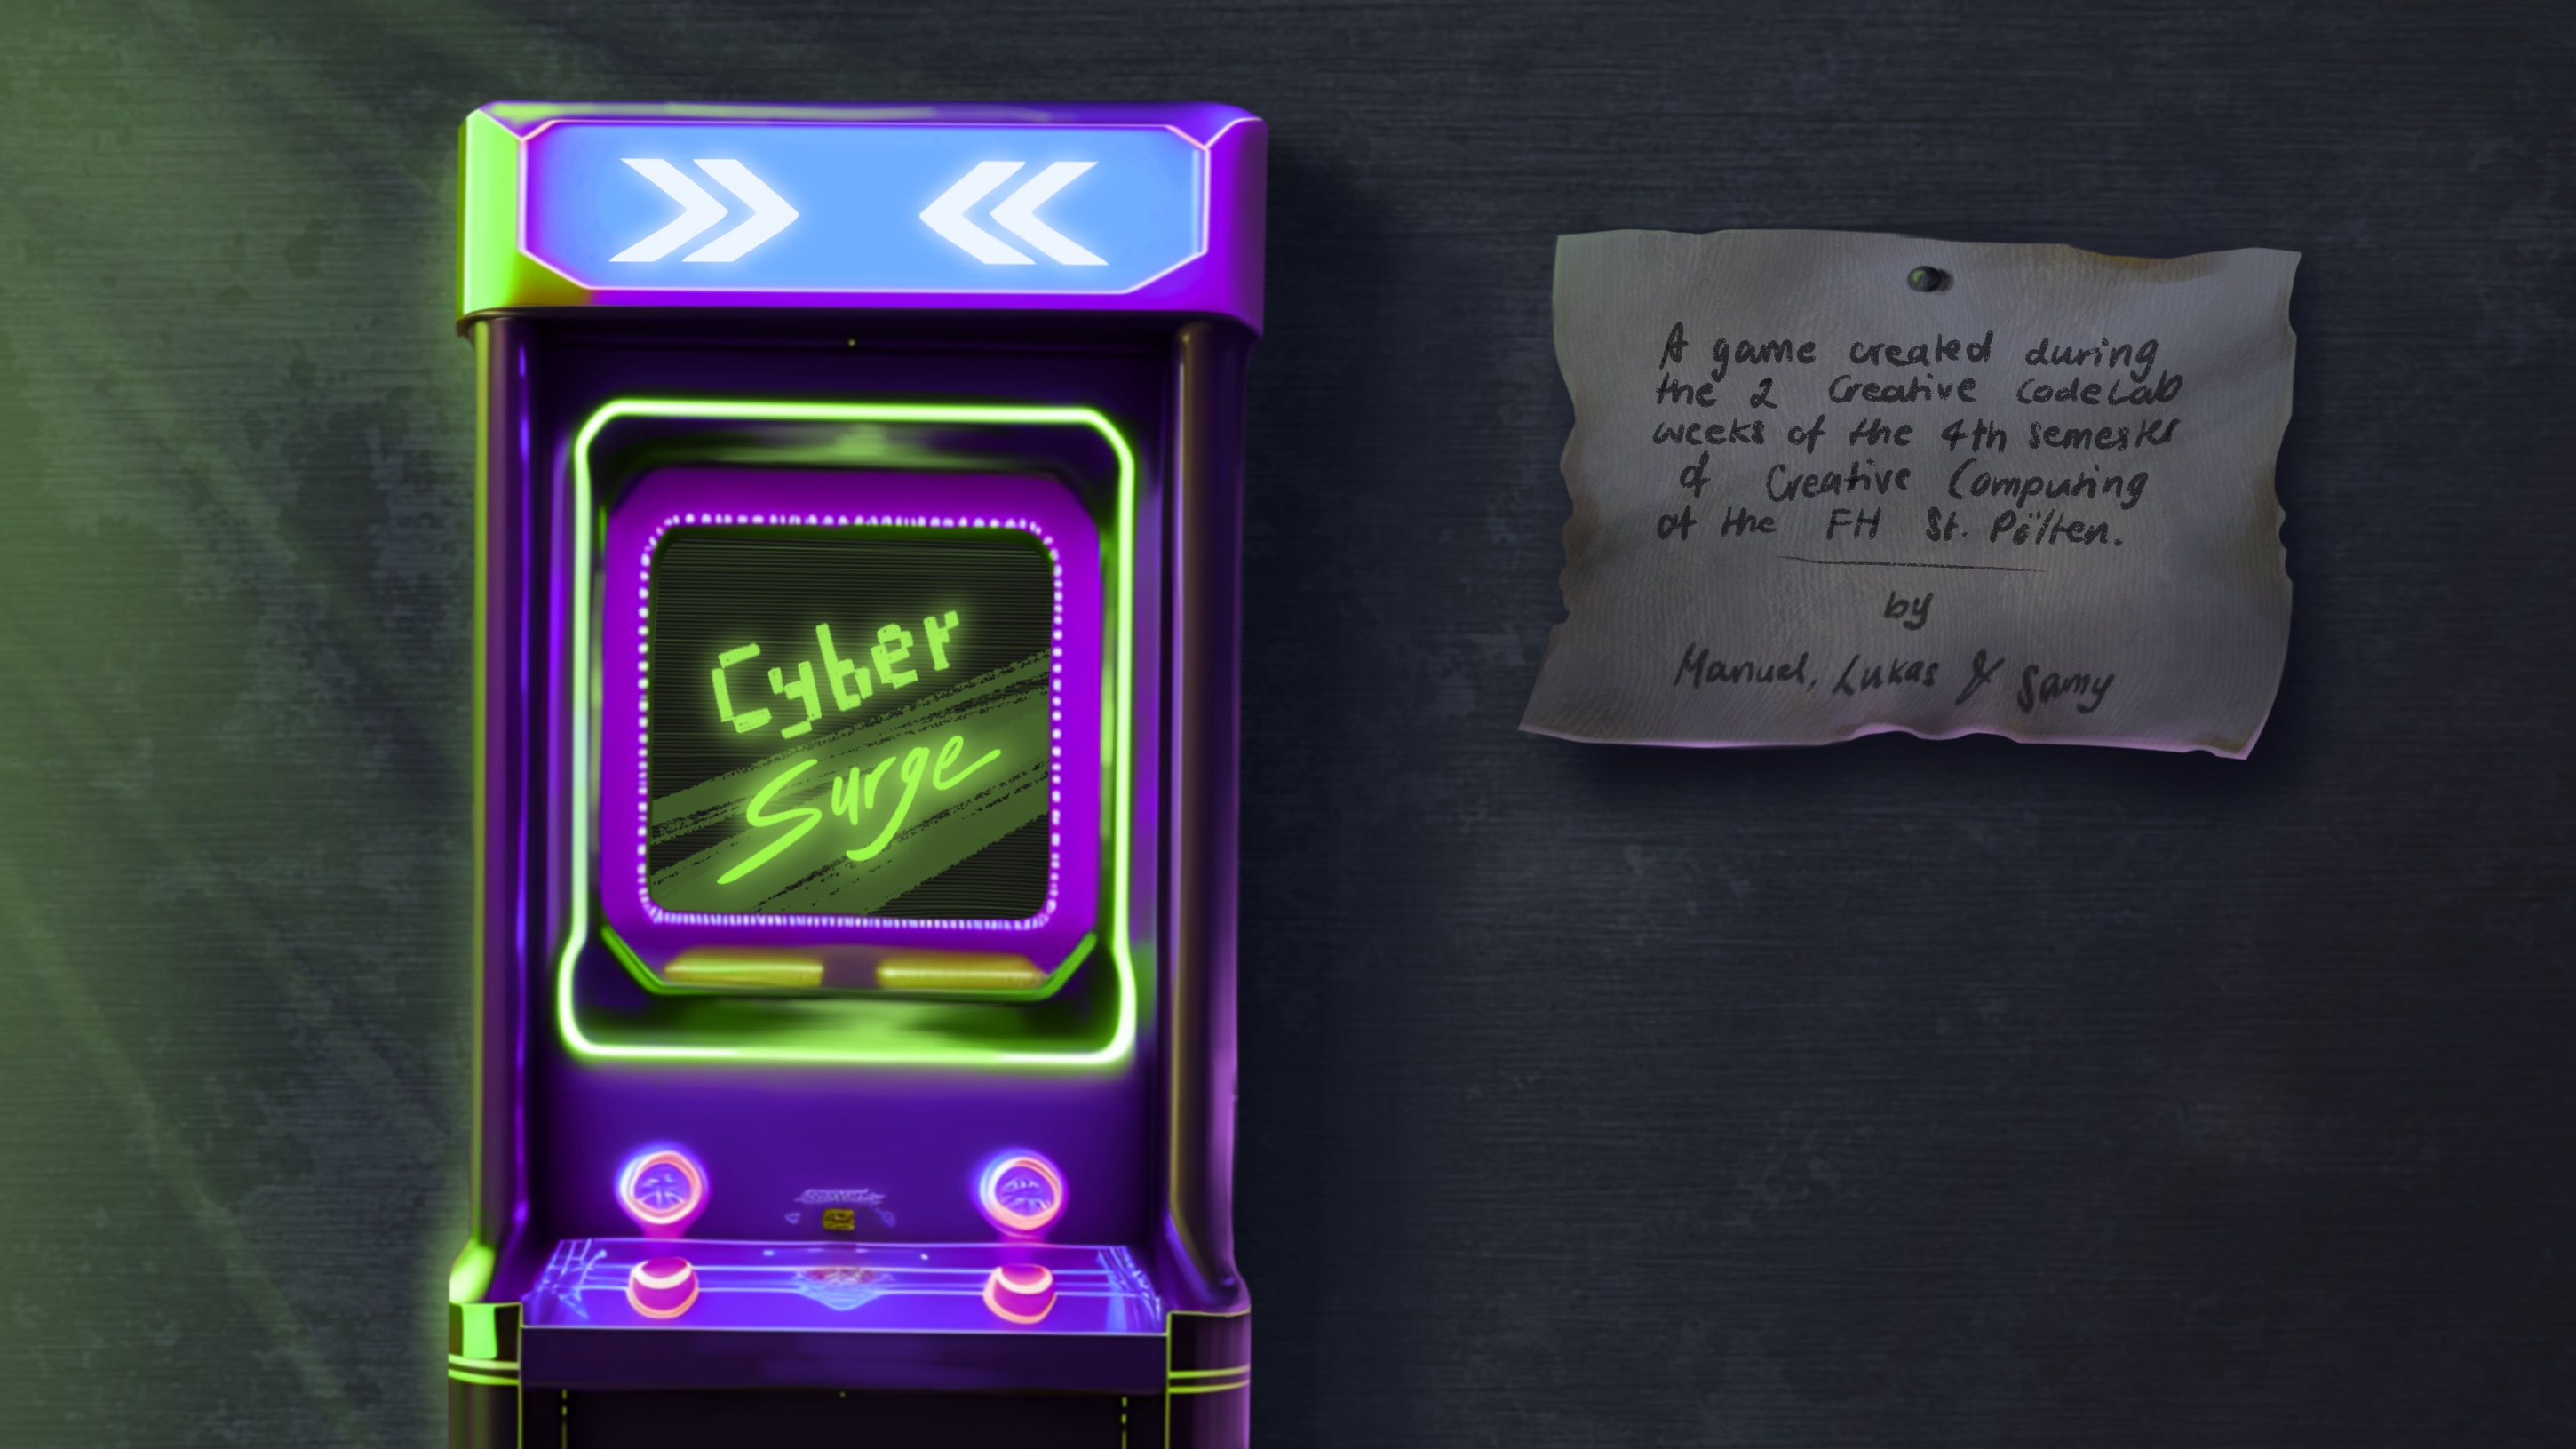 Cyber
Surge
A game created during
the 2 Creative CodeLab
weeks of the 4th semester
of Creative Computing
at the FH St. Pölten.
by
Manuel, Lukas & Samy